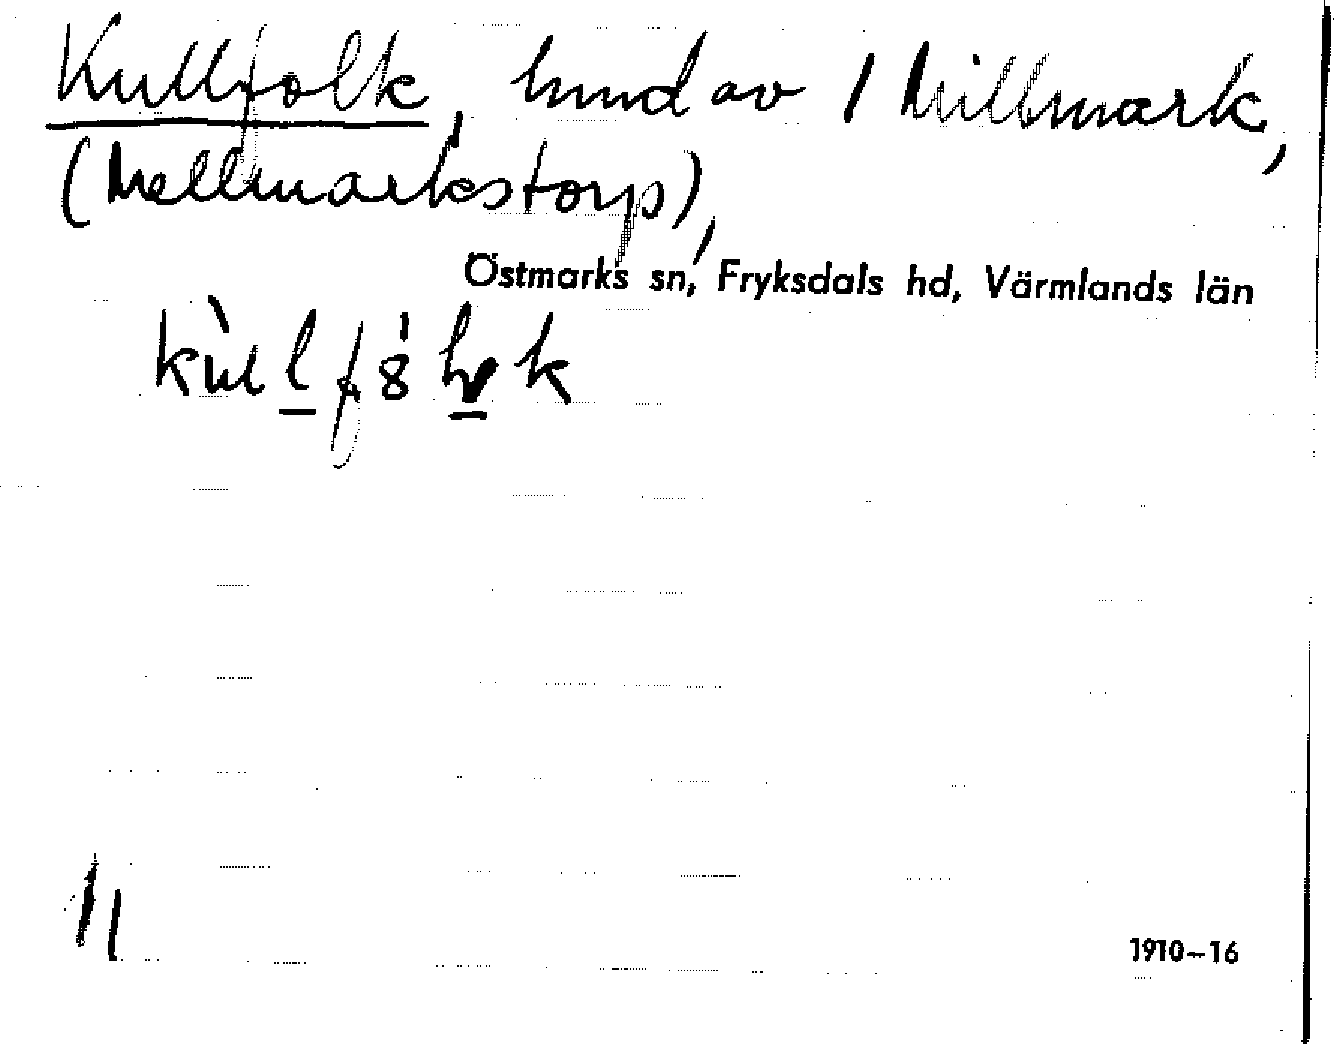 Kullfolk, hmd av 1 Millmark,
(Mellmarkstorp),
Östmarks sn, Fryksdals hd, Värmlands län
11
1910–16